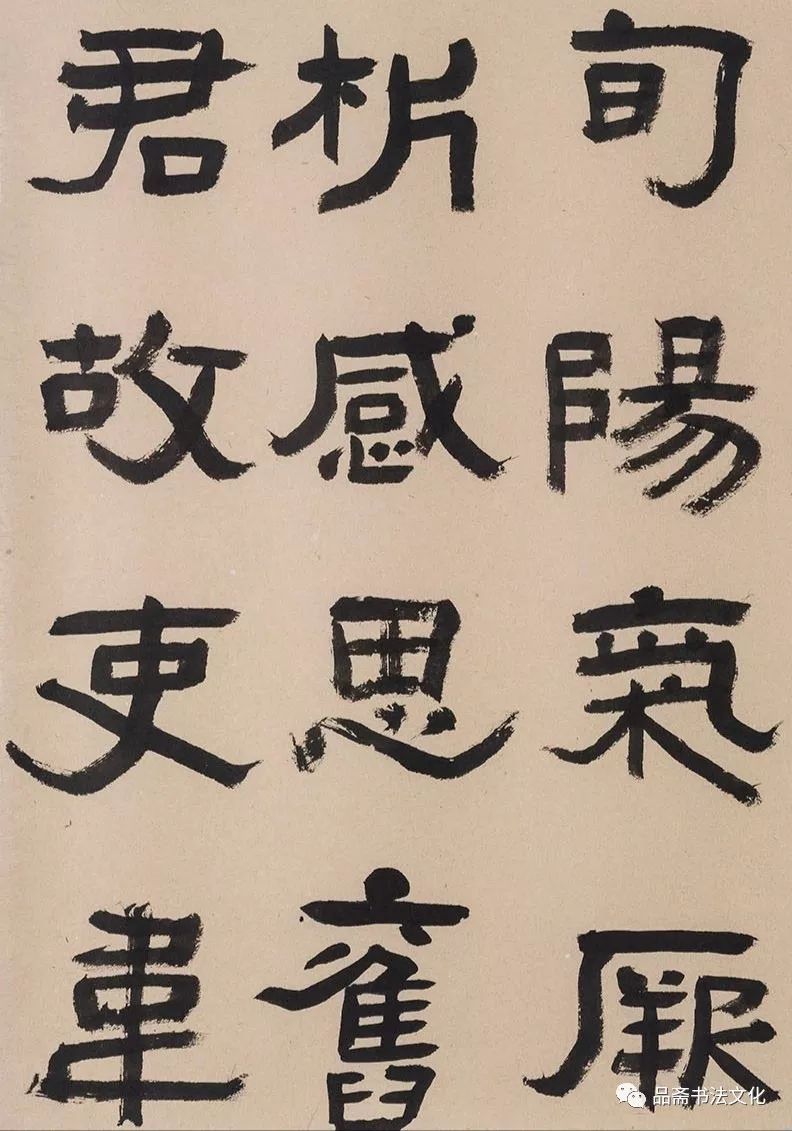 旬陽氣厥
析感思舊
君故吏韋
品斋书法文化